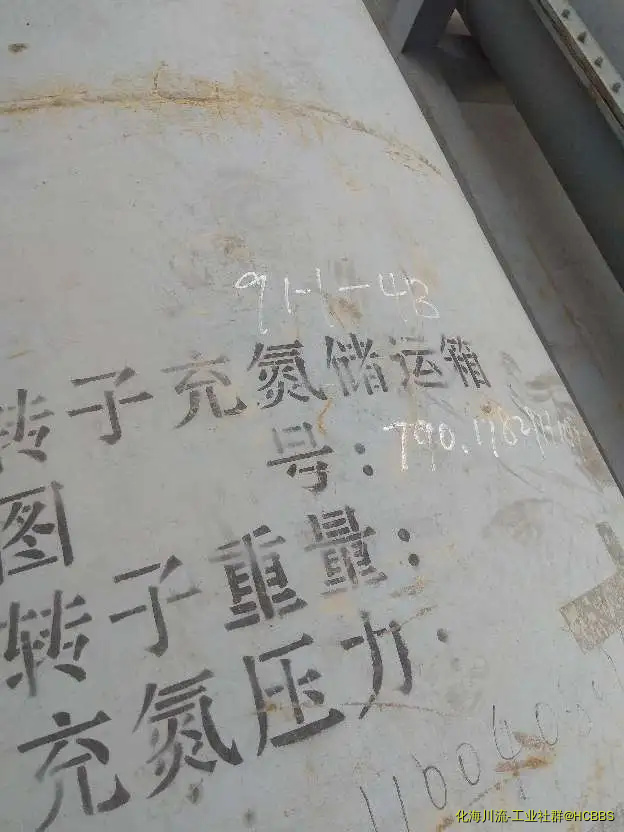 91-1-4B
转子充氮储运箱
图号:
转子重量:
充氮压力:
化海川流-工业社群@HCBBS